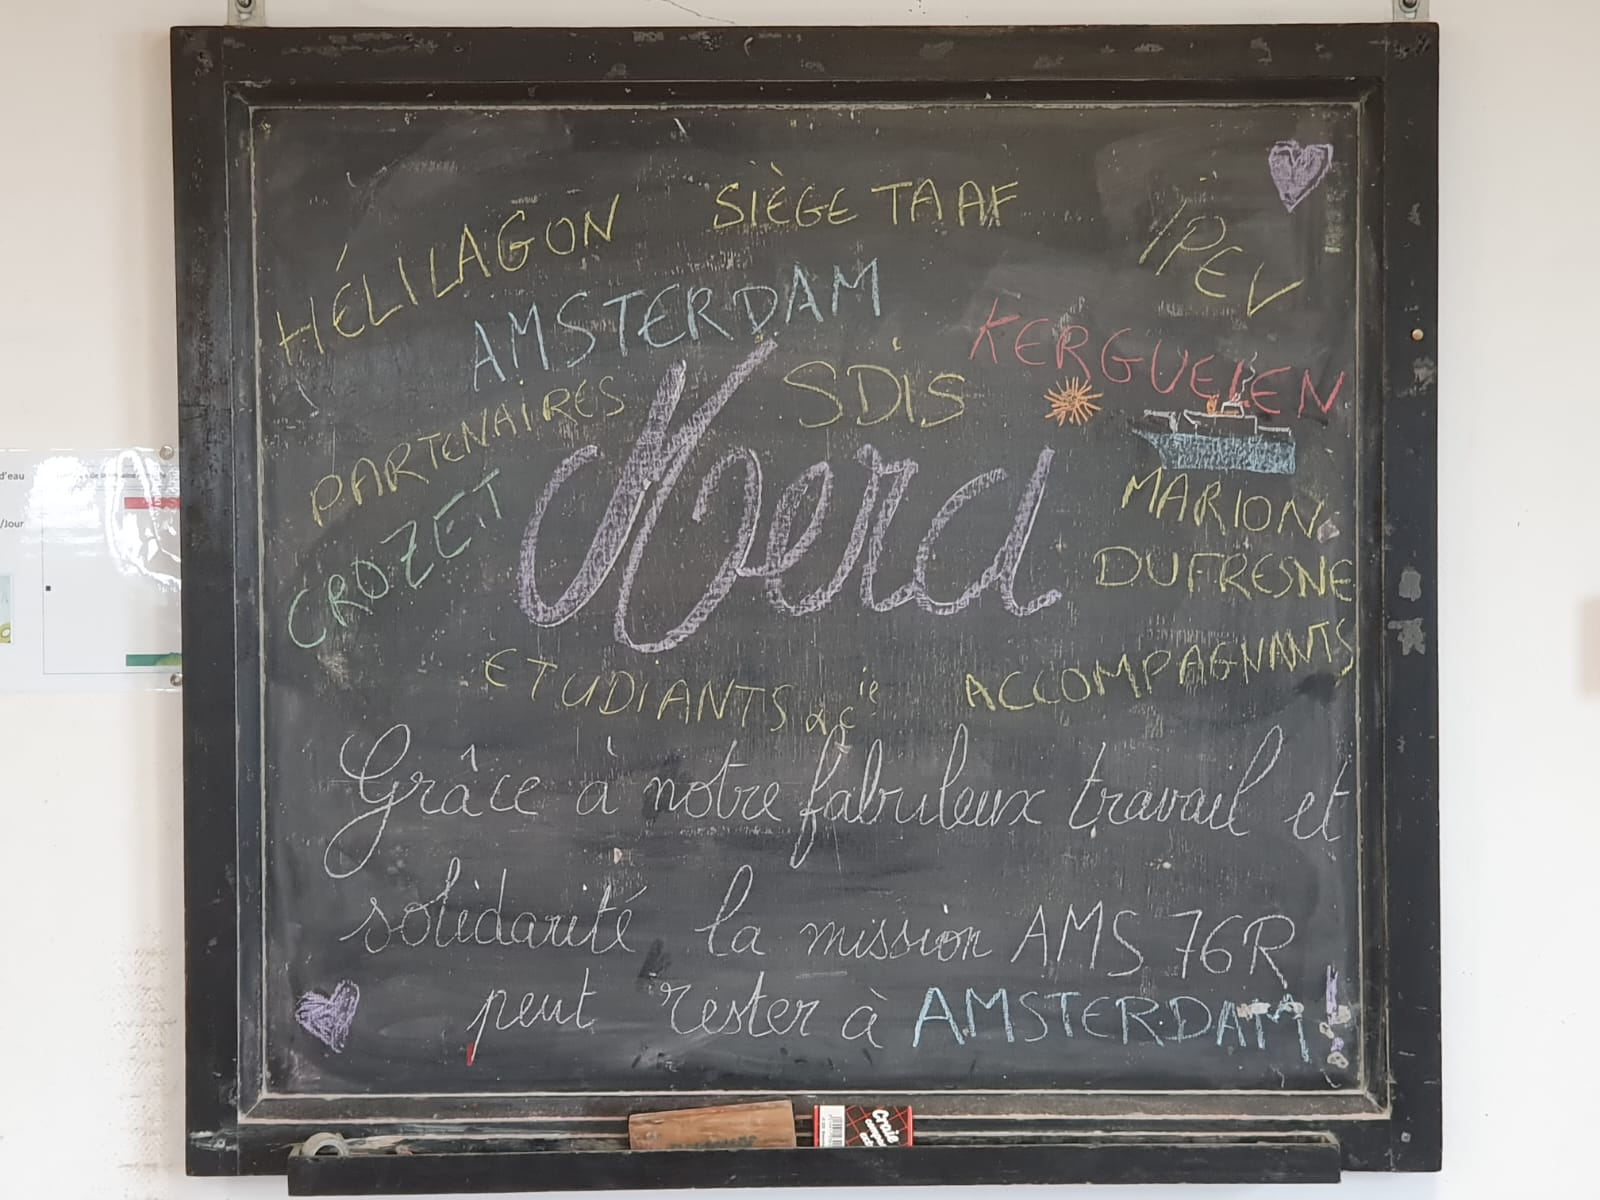 HÉLILAGON SIÈGE TAAF IPEV
AMSTERDAM KERGUELEN
PARTENAIRES SDIS
CROZET Merci MARION
DUFRESNE
ETUDIANTS & Cie ACCOMPAGNANTS
Grâce à notre fabuleux travail et
solidarité la mission AMS 76R
peut rester à AMSTERDAM !
d'eau
/Jour
Craie